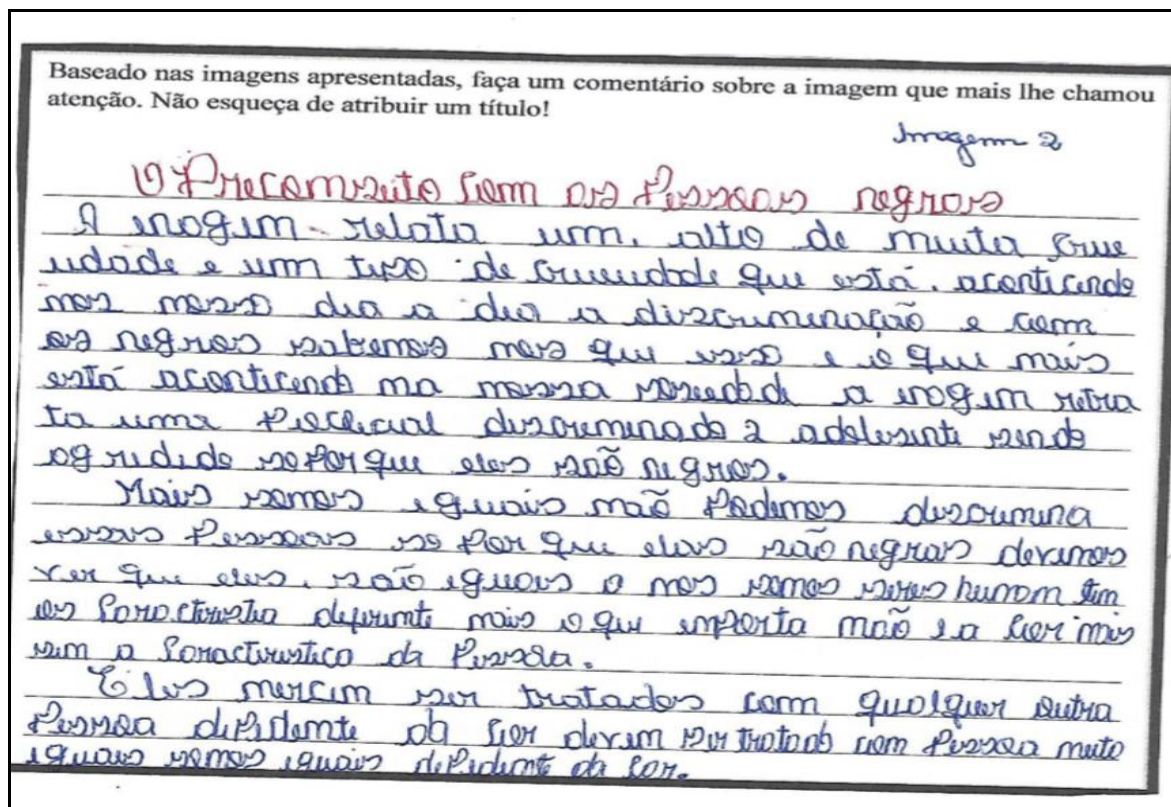 Baseado nas imagens apresentadas, faça um comentário sobre a imagem que mais lhe chamou
atenção. Não esqueça de atribuir um título!
Imagem 2
O Preconseito com as Pessoas negras
A imogim relata um alto de muita crue
udade e um tipo de crueudade que está aconticendo
nos nosso dia a dia a discriminação e com
os negros sabemos mos que isso e o que mais
está aconticendo na nossa sosiedade a imogim retra
ta uma discriminado 2 adolesente sendo
ogredido so porque eles são negros.
Mais somos iguais não Podemos discrimina
essas Pessoas so por que elas são negras devemos
ver que eles são iguais a nos somos seres humom tem
as caracteristica diferente mais o que importa não e a cor mis
sim a caracteristico da Pessoa.
Eles mercim ser tratados com qualquer outra
Pessoa dipidente da cor devem ser tratado com Pessoa muto
iguais somos iguais dipidente da cor.